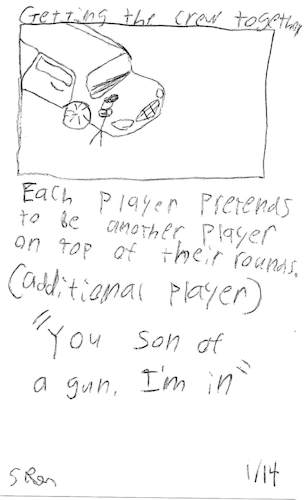 Getting the crew together
Each Player Pretends
to be another Player
on top of their rounds.
(additional player)
"You son of
a gun, I'm in"
1/14